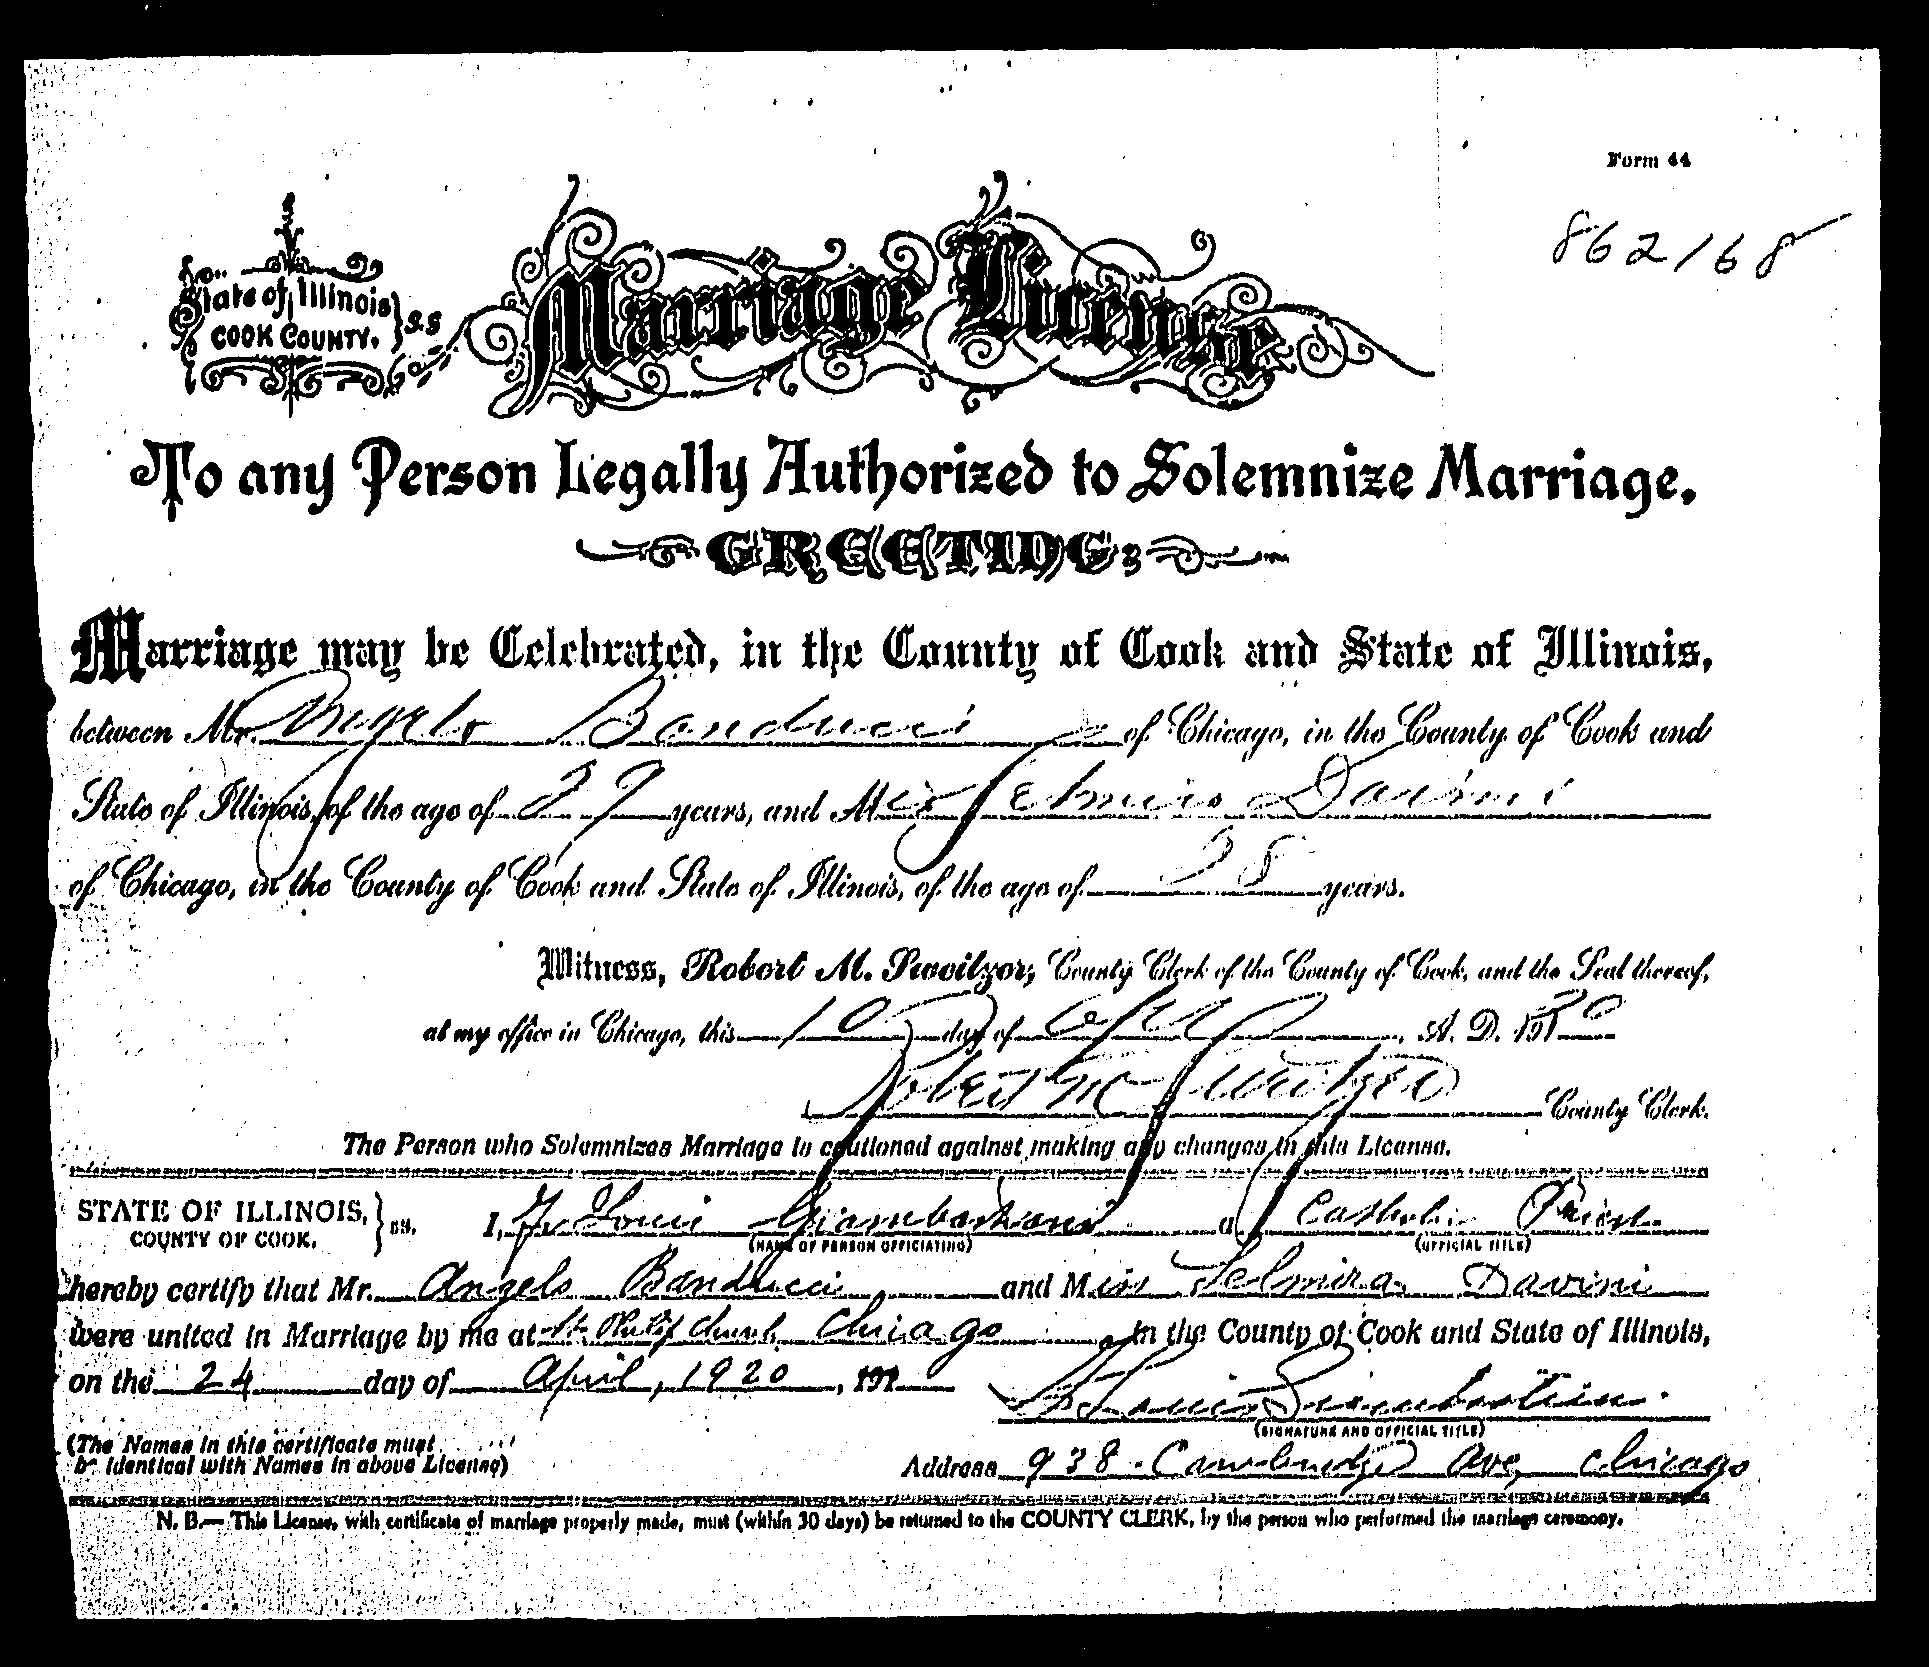 Form 44
862168
State of Illinois } S.S
COOK COUNTY.
Marriage License
To any Person Legally Authorized to Solemnize Marriage.
GREETING:
Marriage may be Celebrated, in the County of Cook and State of Illinois,
between Mr. Angelo Banducci of Chicago, in the County of Cook and
State of Illinois, of the age of 29 years, and Miss Selmira Davini
of Chicago, in the County of Cook and State of Illinois, of the age of 28 years.
Witness, Robert M. Sweitzer, County Clerk of the County of Cook, and the Seal thereof,
at my office in Chicago, this 10 day of A. D. 1920
Robert M Sweitzer County Clerk.
The Person who Solemnizes Marriage is cautioned against making any changes in this License.
STATE OF ILLINOIS, } ss. I, Fr Louis Giambastiani a Catholic Priest
COUNTY OF COOK. (NAME OF PERSON OFFICIATING) (OFFICIAL TITLE)
hereby certify that Mr. Angelo Banducci and Miss Selmira Davini
were united in Marriage by me at St Philip Church Chicago in the County of Cook and State of Illinois,
on the 24 day of April, 1920, 191
Louis Giambastiani
(SIGNATURE AND OFFICIAL TITLE)
(The Names in this certificate must
be identical with Names in above License)
Address 938 Cambridge Ave, Chicago
N. B.— This License, with certificate of marriage properly made, must (within 30 days) be returned to the COUNTY CLERK, by the person who performed the marriage ceremony.